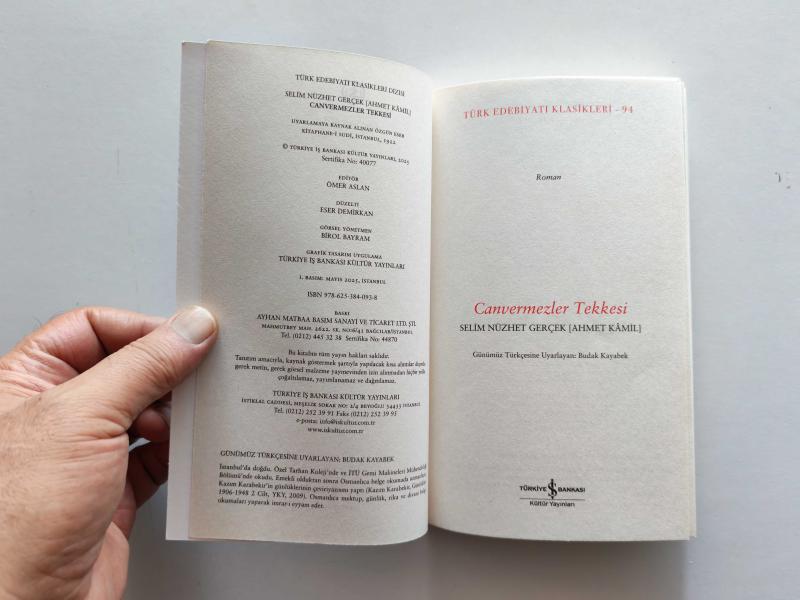 TÜRK EDEBİYATI KLASİKLERİ DİZİSİ
SELİM NÜZHET GERÇEK [AHMET KÂMİL]
CANVERMEZLER TEKKESİ
UYARLAMAYA KAYNAK ALINAN ÖZGÜN ESER
KİTAPHANE-İ SUDİ, İSTANBUL, 1922
© TÜRKİYE İŞ BANKASI KÜLTÜR YAYINLARI, 2025
Sertifika No: 40077
EDİTÖR
ÖMER ASLAN
DÜZELTİ
ESER DEMİRKAN
GÖRSEL YÖNETMEN
BİROL BAYRAM
GRAFİK TASARIM UYGULAMA
TÜRKİYE İŞ BANKASI KÜLTÜR YAYINLARI
1. BASIM: MAYIS 2025, İSTANBUL
ISBN 978-625-384-093-8
BASKI
AYHAN MATBAA BASIM SANAYİ VE TİCARET LTD. ŞTİ.
MAHMUTBEY MAH. 2622. SK. NO:6/41 BAĞCILAR/İSTANBUL
Tel. (0212) 445 32 38 Sertifika No: 44870
Bu kitabın tüm yayın hakları saklıdır.
Tanıtım amacıyla, kaynak göstermek şartıyla yapılacak kısa alıntılar dışında
gerek metin, gerek görsel malzeme yayınevinden izin alınmadan hiçbir yolla
çoğaltılamaz, yayımlanamaz ve dağıtılamaz.
TÜRKİYE İŞ BANKASI KÜLTÜR YAYINLARI
İSTİKLAL CADDESİ, MEŞELİK SOKAK NO: 2/4 BEYOĞLU 34433 İSTANBUL
Tel. (0212) 252 39 91 Faks (0212) 252 39 95
e-posta: info@iskultur.com.tr
www.iskultur.com.tr
GÜNÜMÜZ TÜRKÇESİNE UYARLAYAN: BUDAK KAYABEK
İstanbul'da doğdu. Özel Tarhan Koleji'nde ve İTÜ Gemi Makineleri Mühendisliği
Bölümü'nde okudu. Emekli olduktan sonra Osmanlıca belge okumada uzmanlaştı.
Kazım Karabekir'in günlüklerinin çevriyazısını yaptı (Kazım Karabekir, Günlükler
1906-1948 2 Cilt, YKY, 2009). Osmanlıca mektup, günlük, rika ve divani belge
okumaları yaparak imrar-ı eyyam eder.
TÜRK EDEBİYATI KLASİKLERİ - 94
Roman
Canvermezler Tekkesi
SELİM NÜZHET GERÇEK [AHMET KÂMİL]
Günümüz Türkçesine Uyarlayan: Budak Kayabek
TÜRKİYE İŞ BANKASI
Kültür Yayınları